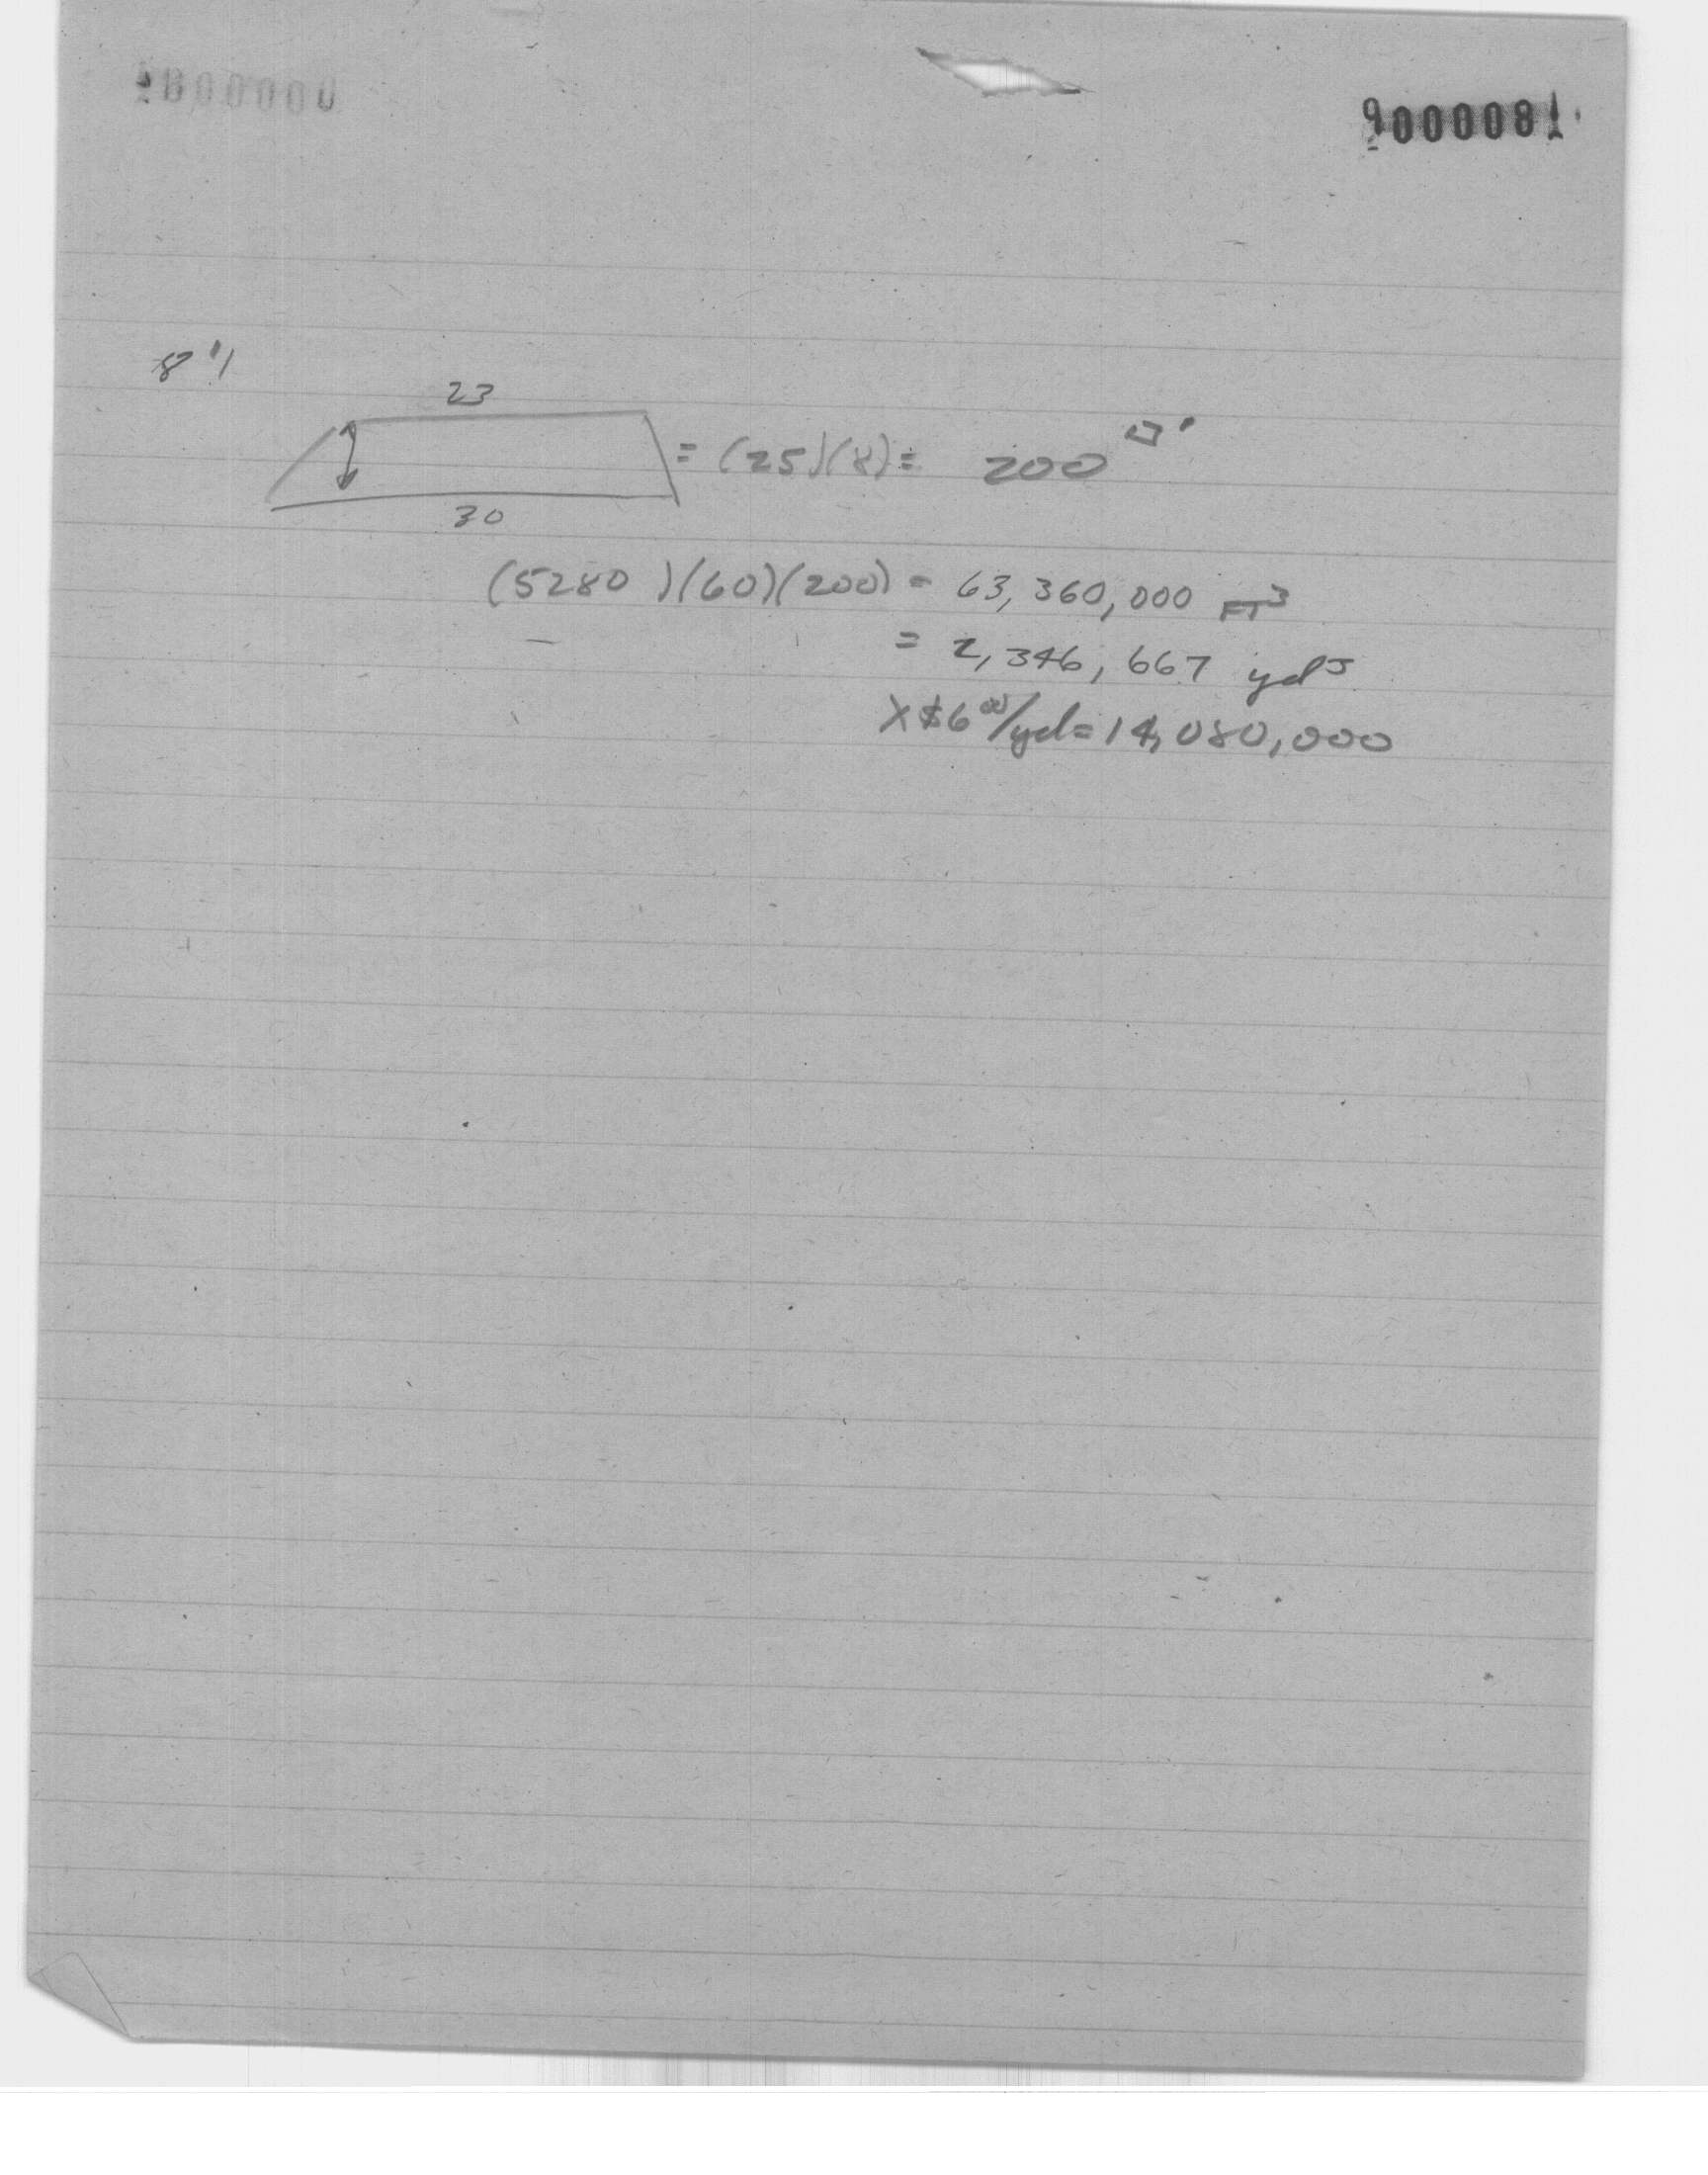 9000081
8'
23
= (25)(8) = 200 □'
30
(5280 )(60)(200) = 63,360,000 FT³
= 2,346,667 yd³
X $6⁰⁰/yd = 14,080,000